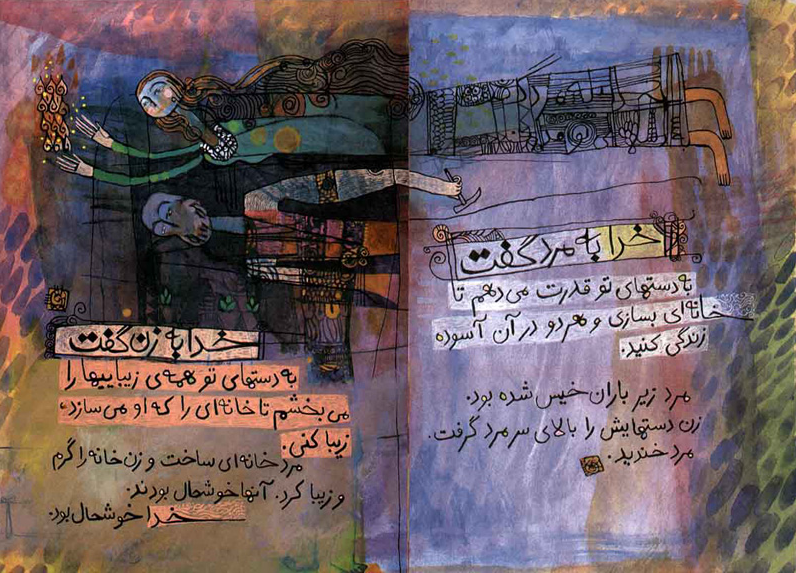 خدا به مرد گفت
به دستهای تو قدرت می‌دهم تا
خانه‌ای بسازی و هر دو در آن آسوده
زندگی کنید.
مرد زیر باران خیس شده بود.
زن دستهایش را بالای سر مرد گرفت.
مرد خندید.
خدا به زن گفت
به دستهای تو همه‌ی زیباییها را
می‌بخشم تا خانه‌ای را که او می‌سازد،
زیبا کنی.
مرد خانه‌ای ساخت و زن خانه را گرم
و زیبا کرد. آنها خوشحال بودند.
خدا خوشحال بود.